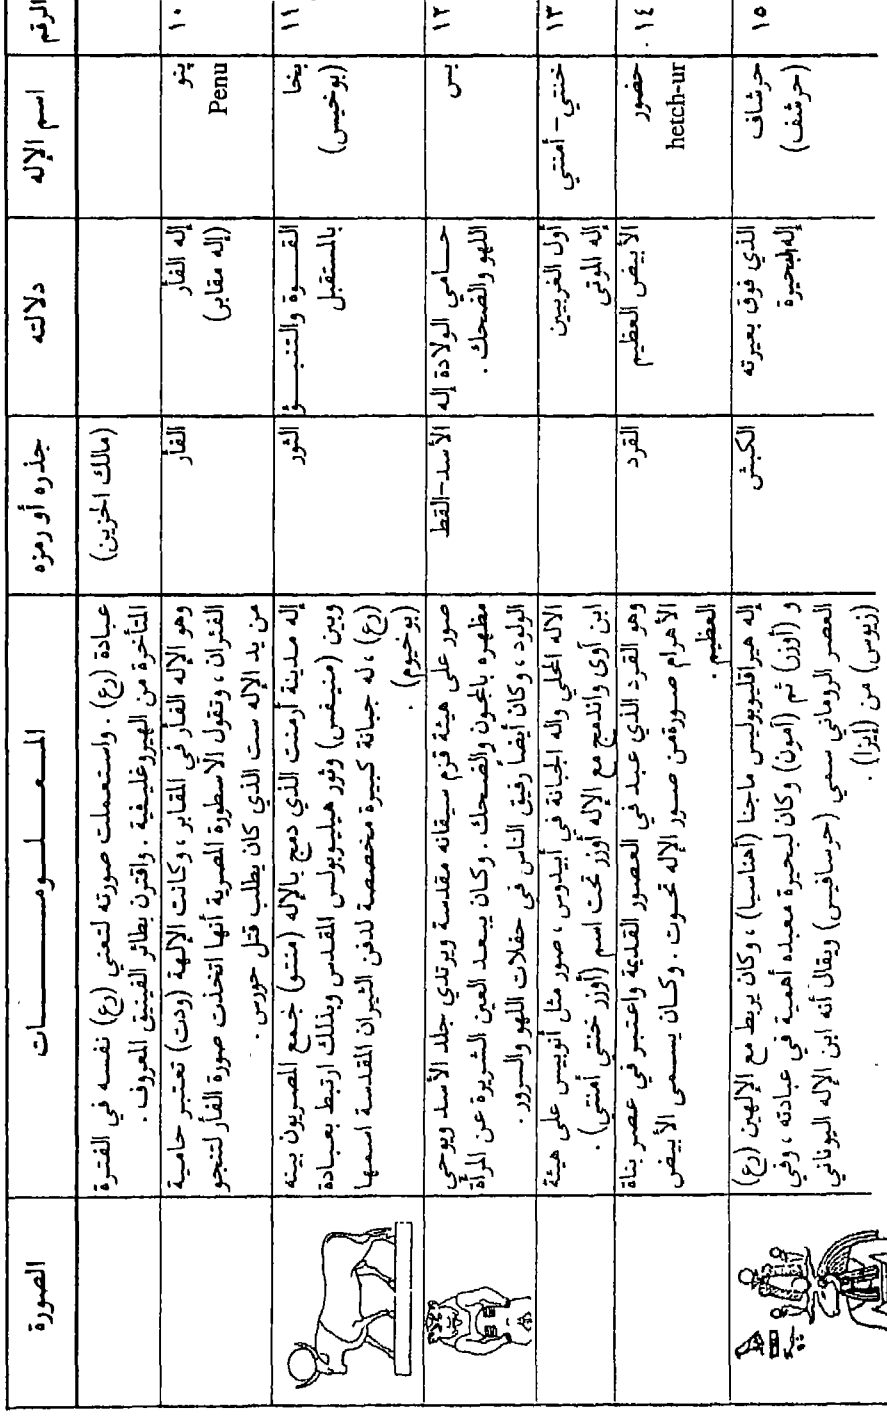 الرقم اسم الإله دلالته جذره أو رمزه المعلومات الصورة
(مالك الحزين)
عبادة (رع) . واستعملت صورته لتعني (رع) نفسه في الفترة
المتأخرة من الهيروغليفية . واقترن بطائر الفينيق المعروف .
١٠
پنو
Penu
إله الفأر
(إله مقابر)
الفأر
وهو الإله الفأر في المقابر ، وكانت الإلهة (ودت) تعتبر حامية
الفئران ، وتقول الاسطورة المصرية أنها اتخذت صورة الفأر لتنجو
من يد الإله ست الذي كان يطلب قتل حورس .
١١
بخا
(بوخيس)
القوة والتنبؤ
بالمستقبل
الثور
إله مدينة أرمنت الذي دمج بالإله (منتو) جمع المصريون بينه
وبين (منيفس) وثور هيليوبولس المقدس وبذلك ارتبط بعبادة
(رع) ، له جبانة كبيرة مخصصة لدفن الثيران المقدسة اسمها
(بوخيوم) .
١٢
بس
حامي الولادة إله
اللهو والضحك .
الأسد-القط
صور على هيئة قزم سيقانه مقدسة ويرتدي جلد الأسد ويوحي
مظهره بالمجون والضحك . وكان يبعد العين الشريرة عن المرأة
الولود ، وكان أيضاً رفيق الناس في حفلات اللهو والسرور .
١٣
خنتي - أمنتي
أول الغربيين
إله الموتى
الاله المحلي واله الجبانة في أبيدوس ، صور مثل أنوبيس على هيئة
ابن آوى واندمج مع الإله أوزر تحت اسم (أوزر خنتي أمنتي) .
١٤ .
حضور
hetch-ur
الأبيض العظيم
القرد
وهو القرد الذي عبد في العصور القديمة واعتبر في عصر بناة
الأهرام صورة من صور الإله تحوت . وكان يسمى الأبيض
العظيم .
١٥
حرشاف
(حرشف)
الذي فوق بعيرته
إله البحيرة
الكبش
إله هيراقليوبوليس ماجنا (أهناسيا) ، وكان يربط مع الإلهين (رع)
و (أوزر) ثم (آمون) وكان لبحيرة معبده أهمية في عبادته ، وفي
العصر الروماني سمي (حرسافيس) ويقال أنه ابن الإله اليوناني
(زيوس) من (إيزا) .